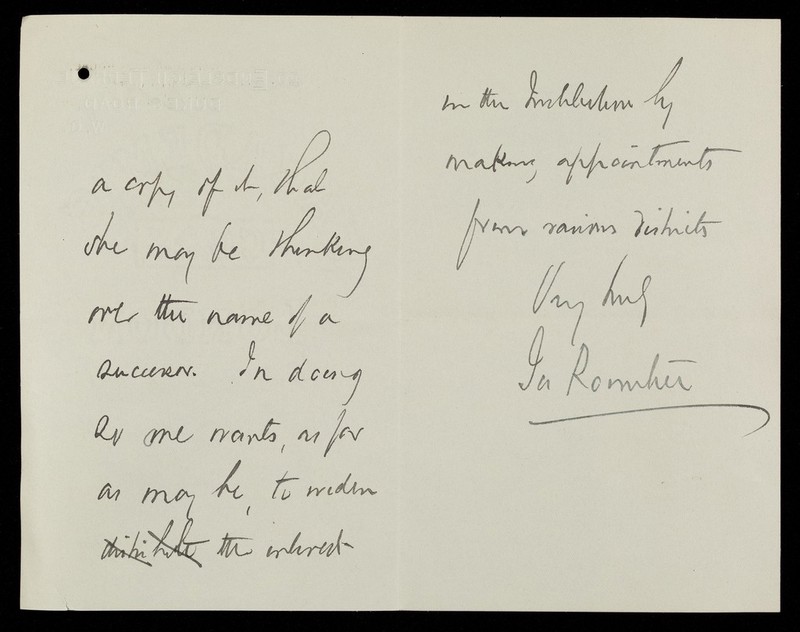 a copy of it, that
she may be thinking
over the name of a
successor. In doing
so one wants, as far
as may be, to widen
distribute the interest
in the Institution by
making appointments
from various districts
Very truly